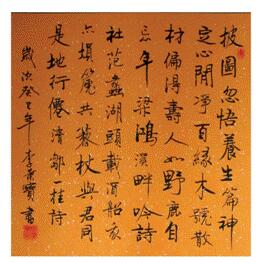 披圖忽悟養生篇神
定心閒净百緣木號散
材偏得壽人如野鹿自
忘年梁鴻溪畔吟詩
社范蠡湖頭載酒船亥
六塤篪共杖與君同
是地行僊清鄒一桂詩
歲次癸巳年李寶書